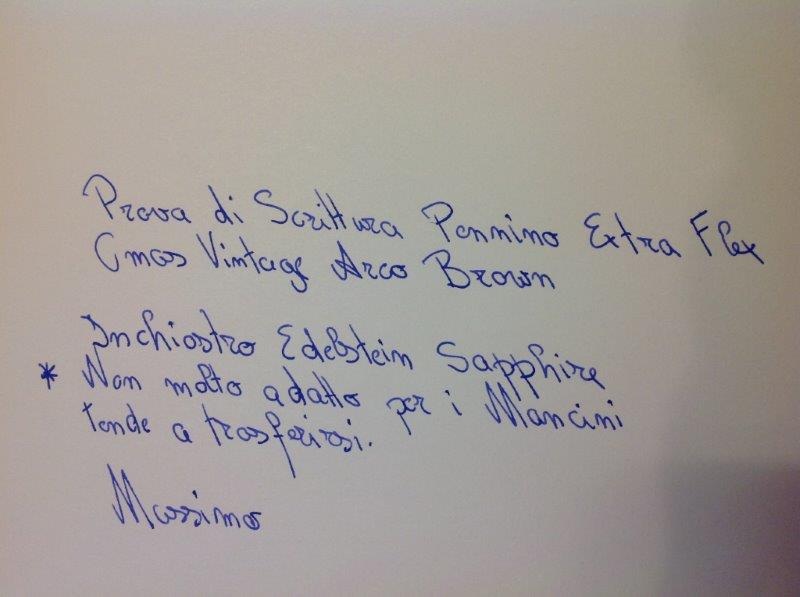 Prova di Scrittura Pennino Extra Flex
Omas Vintage Arco Brown
Inchiostro Edelstein Sapphire
* Non molto adatto per i Mancini
tende a trasferirsi.
Massimo